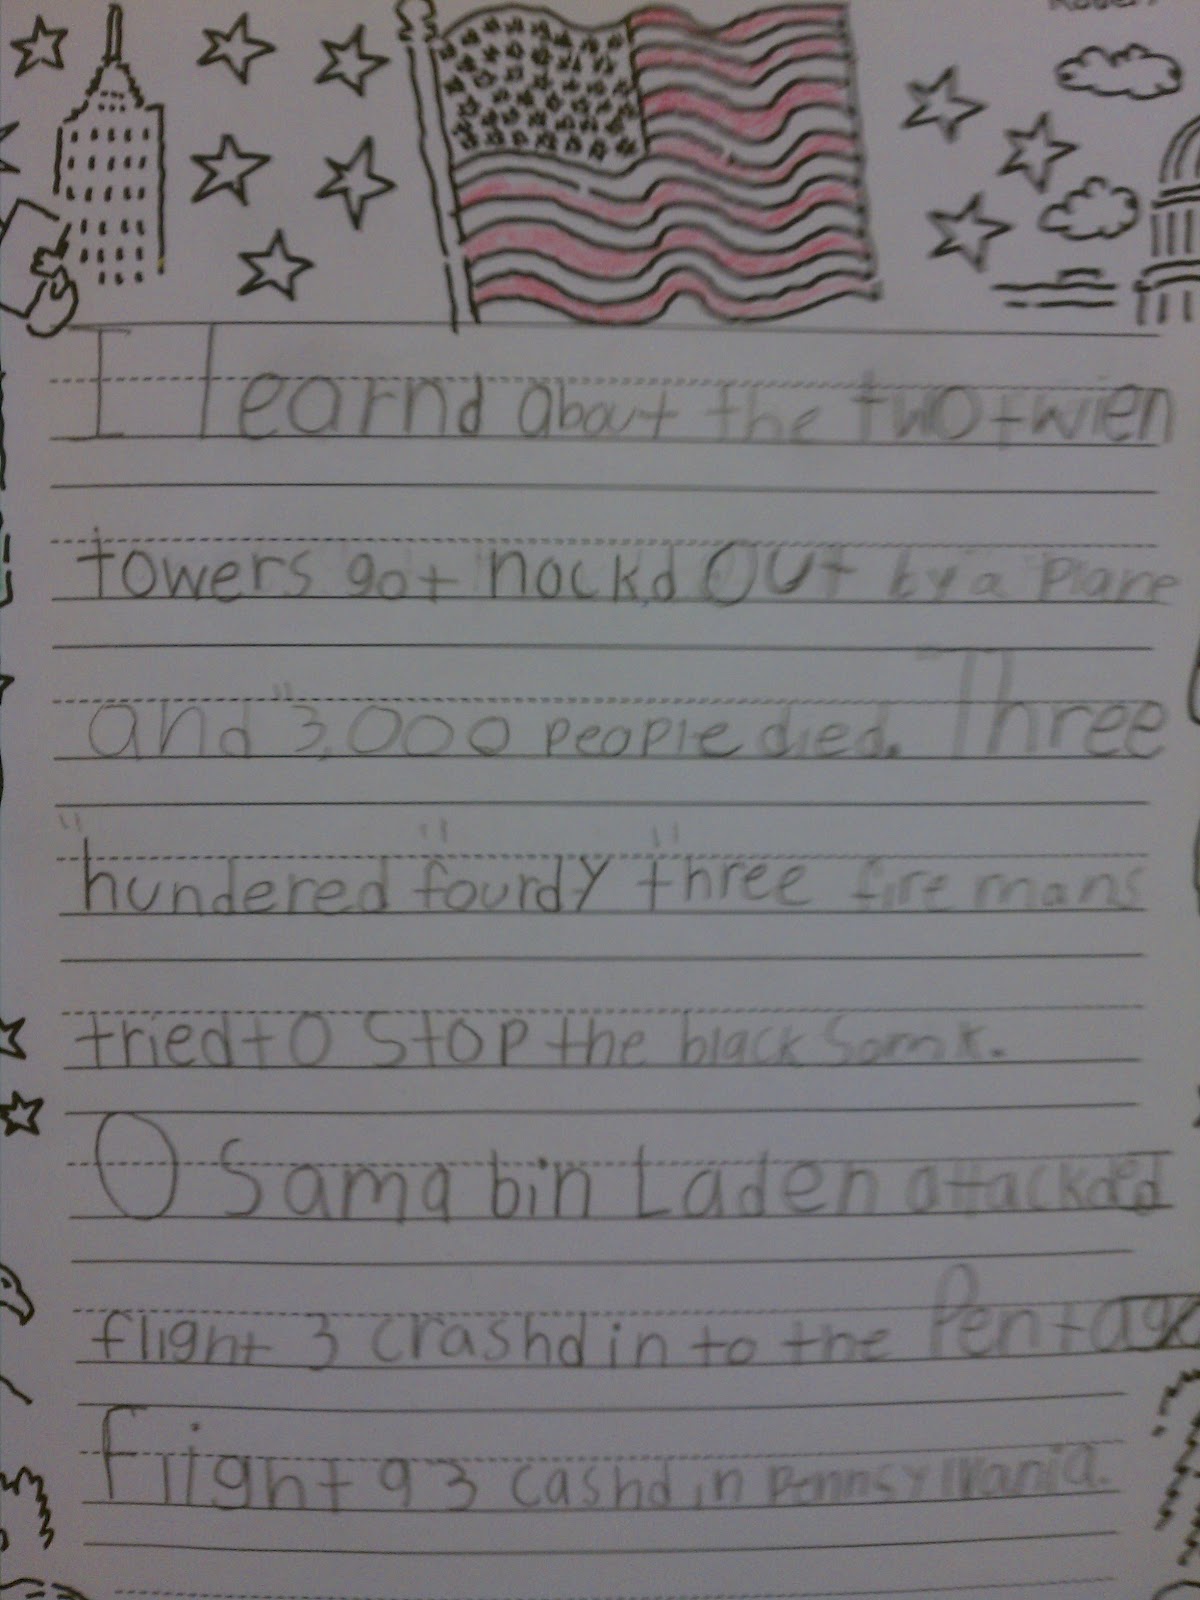 I learnd about the two twien
towers got nockd OUt by a Plane
and "3,000 people died. "Three
"hundered "fourdy "three fire mans
tried to Stop the black Somk.
OSama bin Laden attackded
flight 3 crashd in to the Pentago
Flight 93 cashd in Pennsylvania.